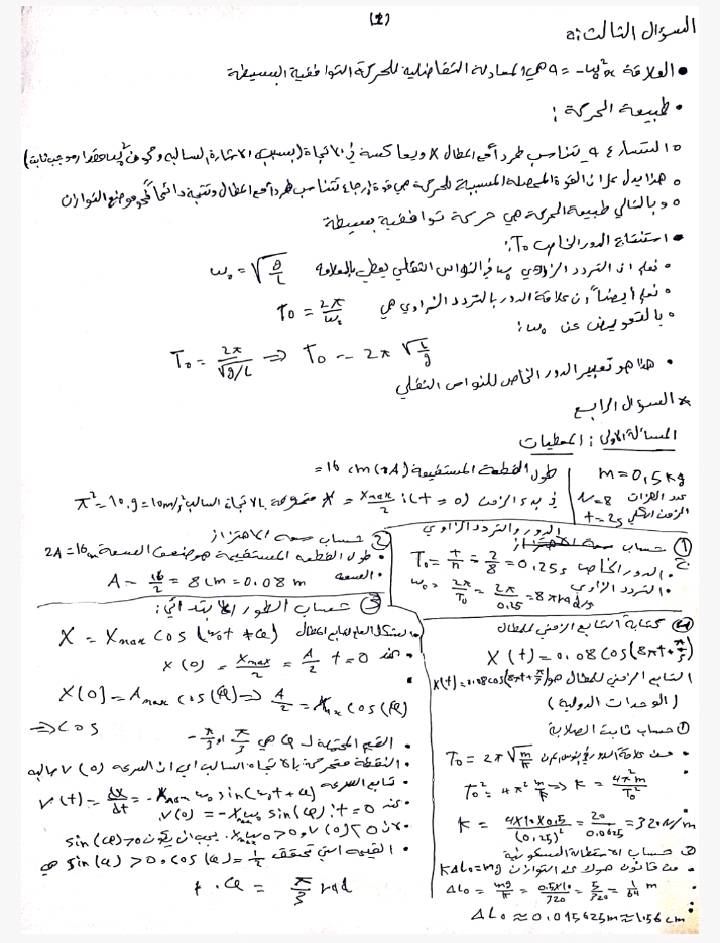 (2)
السؤال الثالث: a
• العلاقة a = -ω₀²x هي المعادلة التفاضلية للحركة التوافقية البسيطة
• طبيعة الحركة :
التسارع a يتناسب طرداً مع المطال x ويعاكسه في الاتجاه (بسبب الإشارة السالبة
• هذا يدل على ان القوة المحصلة المسببة للحركة هي قوة إرجاع تتناسب طرداً مع المطال وتتجه دائماً نحو موضع التوازن
• وبالتالي طبيعة الحركة هي حركة توافقية بسيطة
• استنتاج الدور الخاص T₀:
• نعلم ان التردد الزاوي في النواس الثقلي يعطى بالعلاقة ω₀ = √(g/L)
• نعلم أيضاً ان علاقة الدور بالتردد الزاوي هي T₀ = 2π/ω₀
• بالتعويض عن ω₀:
T₀ = 2π/√(g/L) ⇒ T₀ = 2π √(L/g)
• هذا هو تعبير الدور الخاص للنواس الثقلي
* السؤال الرابع
المسألة الأولى : المعطيات
m = 0,5 kg
طول القطعة المستقيمة (2A) = 16 cm
عدد الهزات N=8
الزمن الكلي t = 2s
في بدء الزمن (t = 0): x = Xmax/2 متحركة بالاتجاه السالب π² = 10, g = 10m/s²
① حساب الدور والتردد الزاوي
• الدور الخاص T₀ = t/n = 2/8 = 0,25s
• التردد الزاوي ω₀ = 2π/T₀ = 2π/0.25 = 8π rad/s
② حساب سعة الاهتزاز
• طول القطعة المستقيمة هو ضعف السعة 2A = 16
• السعة A = 16/2 = 8 cm = 0.08 m
③ حساب الطور الابتدائي :
الشكل العام لتابع المطال X = Xmax cos (ω₀t + φ)
• عند t = 0 x(0) = Xmax/2 = A/2
X(0) = Amax cos(φ) ⇒ A/2 = Amax cos(φ)
⇒ cos
• القيم المحتملة ل φ هي π/3 او -π/3
• النقطة متحركة بالاتجاه السالب اي ان السرعة v(0) سالبة
• تابع السرعة v(t) = dx/dt = -Xmax ω₀ sin(ω₀t + φ)
• عند t = 0: v(0) = -Xmax ω₀ sin(φ)
• لأن v(0) < 0 و Xmax ω₀ > 0 يجب ان يكون sin(φ) > 0
• القيمة التي تحقق cos(φ) = 1/2 و sin(φ) > 0 هي
φ = π/3 rad
④ كتابة التابع الزمني للمطال
X(t) = 0.08 cos(8πt + π/3)
التابع الزمني للمطال هو X(t) = 0.08 cos(8πt + π/3)
(الوحدات الدولية)
① حساب ثابت الصلابة
• من علاقة الدور T₀ = 2π √(m/k)
T₀² = 4π² m/k ⇒ k = 4π²m/T₀²
K = 4×10×0.5/(0,25)² = 20/0.0625 = 320 N/m
② حساب الاستطالة السكونية
• من قانون هوك عند التوازن KΔL₀ = mg
• ΔL₀ = mg/K = 0.5×10/320 = 5/320 = 1/64 m
ΔL₀ ≈ 0.015625m ≈ 1.56 cm